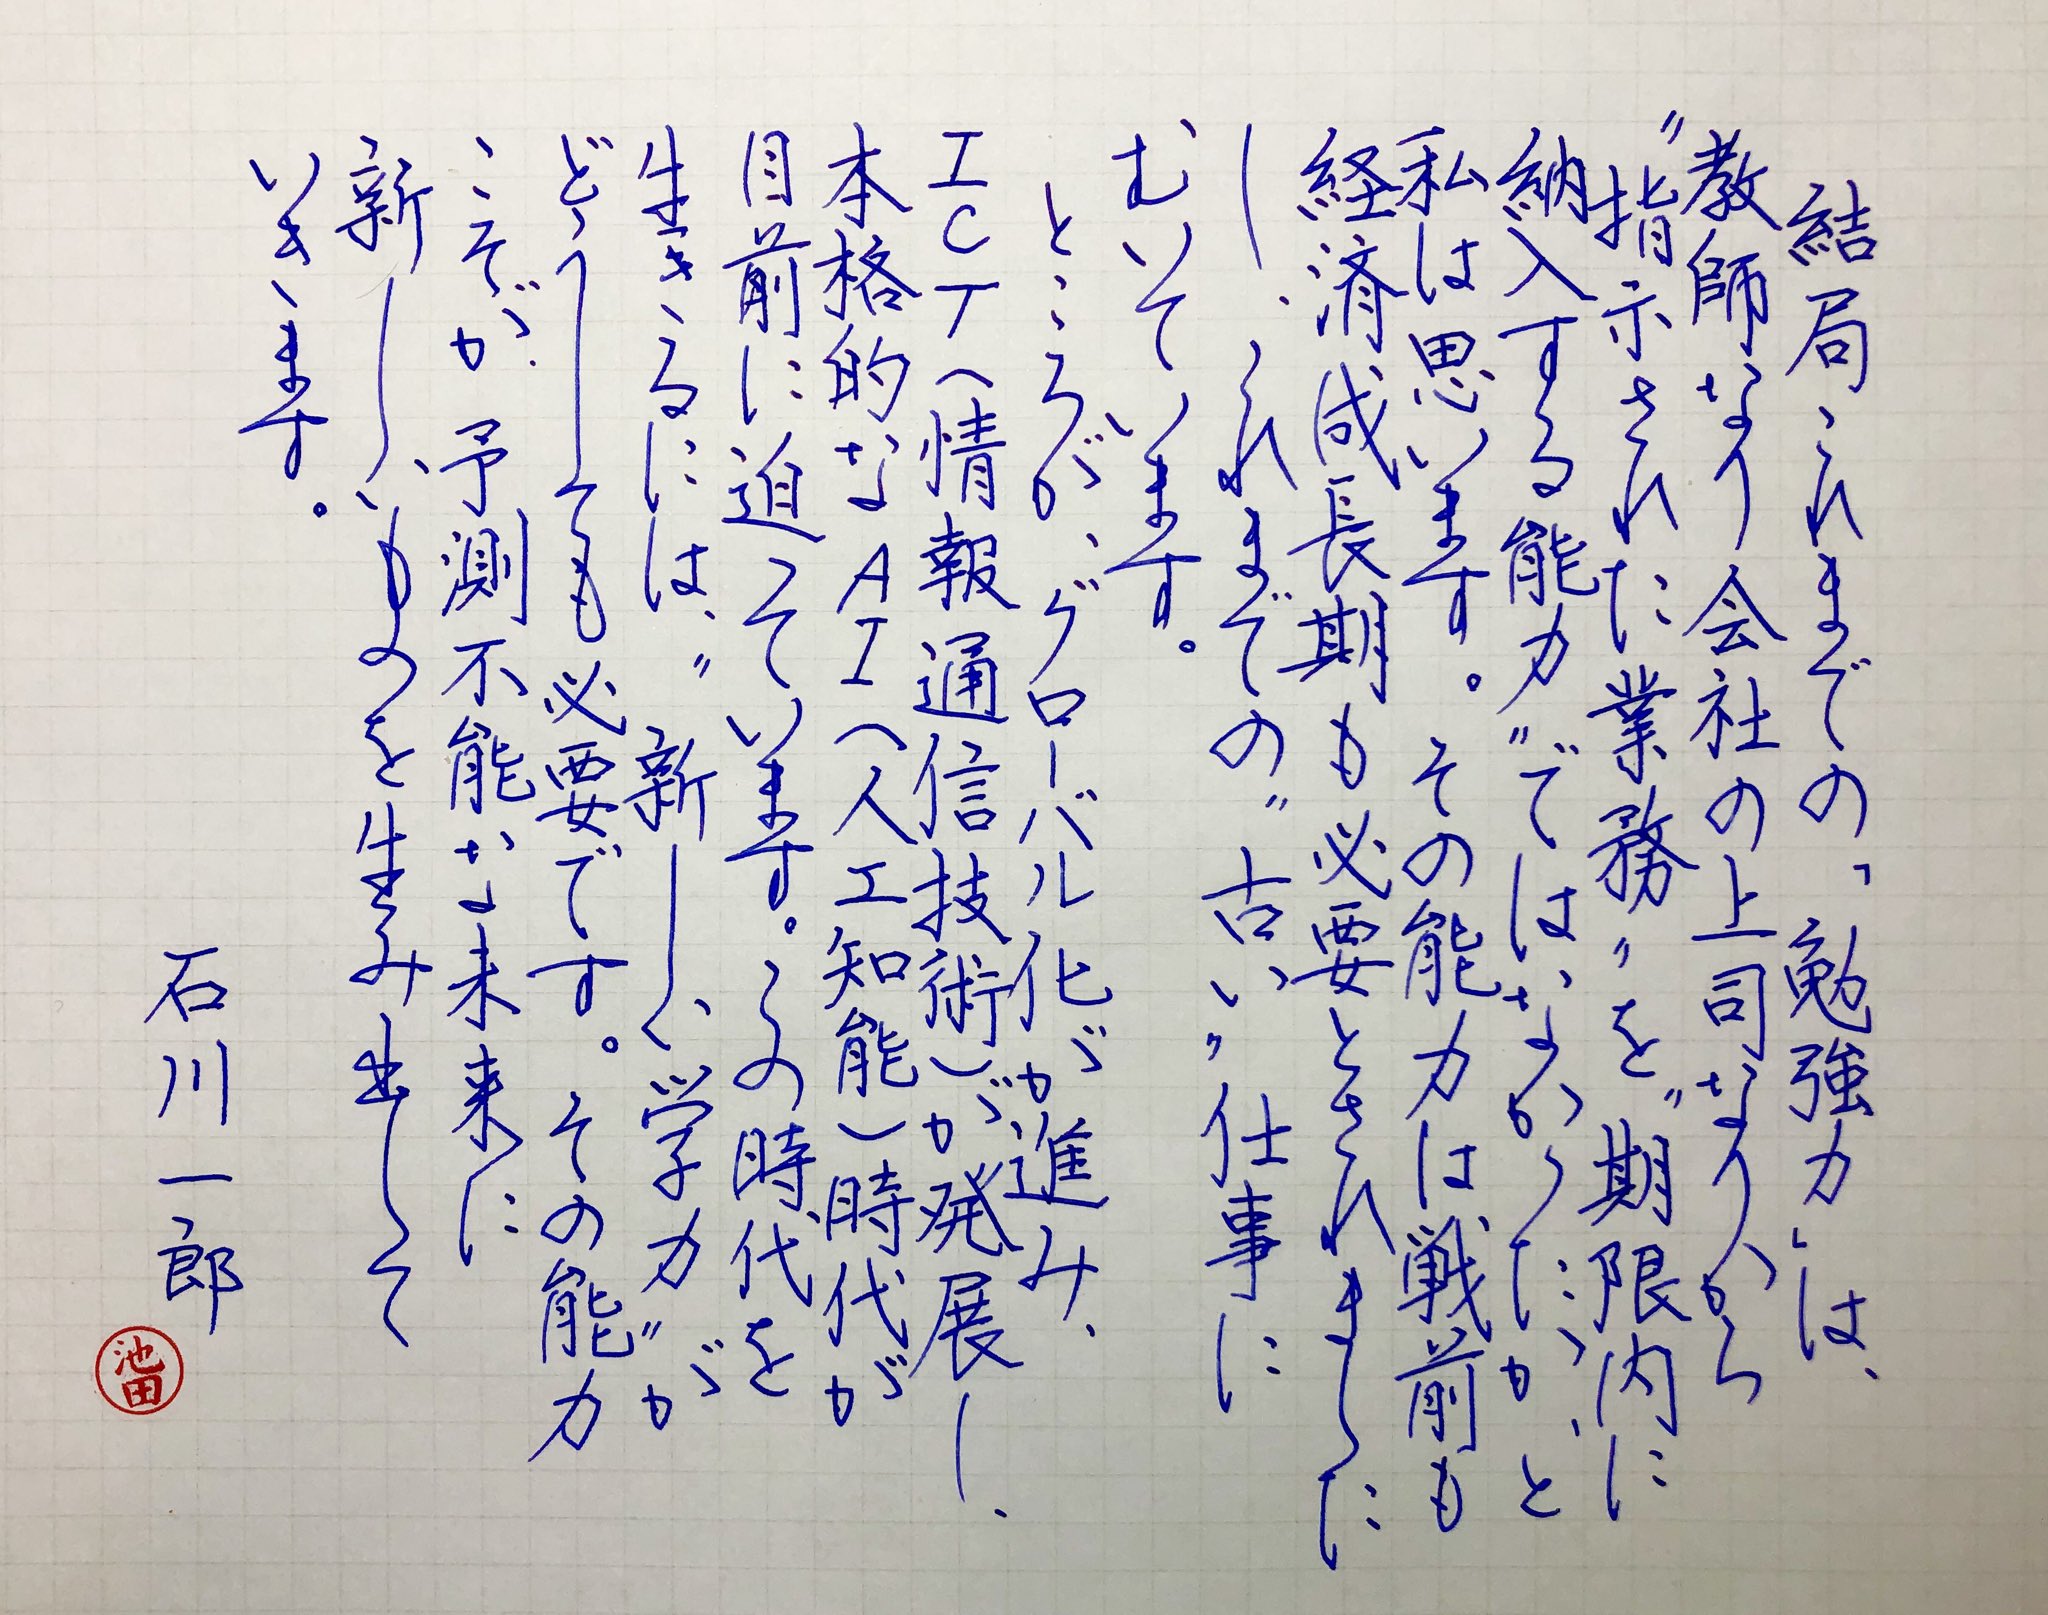 結局これまでの「勉強力」は、
教師なり会社の上司なりから
〝指示された業務〟を〝期限内に
納入する能力〟ではなかったか、と
私は思います。その能力は戦前も
経済成長期も必要とされました
し、これまでの〝古い〟仕事に
むいています。
ところが、グローバル化が進み、
ICT(情報通信技術)が発展し、
本格的なAI(人工知能)時代が
目前に迫っています。この時代を
生きるには、〝新しい学力〟が
どうしても必要です。その能力
こそが、予測不能な未来に
新しいものを生み出して
いきます。
石川一郎
池田